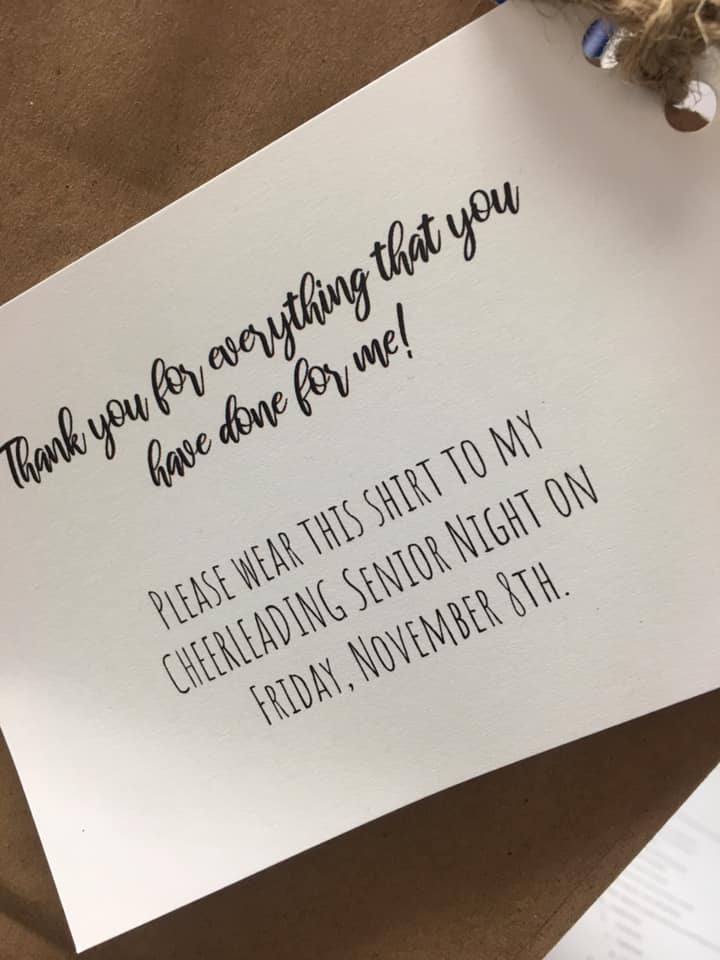 Thank you for everything that you
have done for me!
PLEASE WEAR THIS SHIRT TO MY
CHEERLEADING SENIOR NIGHT ON
FRIDAY, NOVEMBER 8TH.